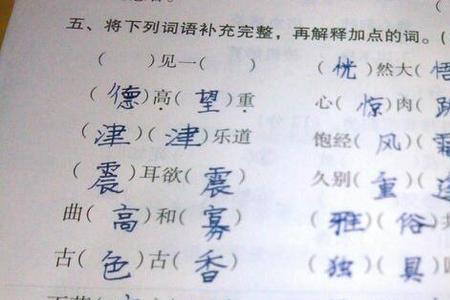 五、将下列词语补充完整，再解释加点的词。(
( )见一( ) (恍)然大(悟
(德)高(望)重 心(惊)肉(跳
(津)(津)乐道 饱经(风)(霜
(震)耳欲(震) 久别(重)(逢
曲(高)和(寡) (雅)(俗)共
古(色)古(香) (独)(具)